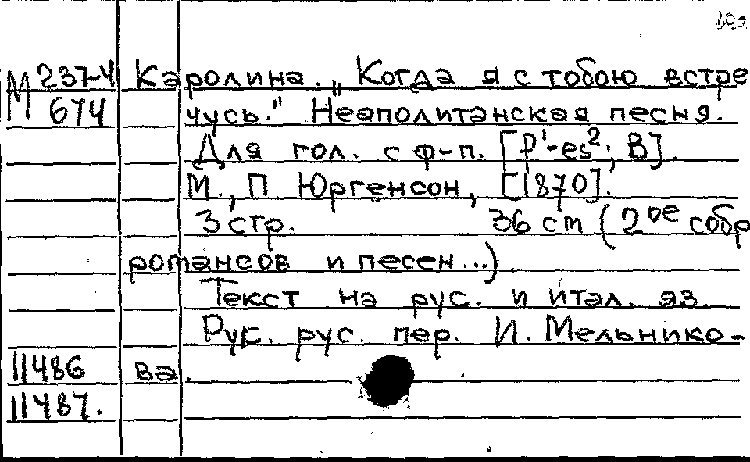 М 237-4 Каролина. „Когда я с тобою встре
674 чусь." Неаполитанская песня.
Для гол. с ф-п. [f¹-es²; B].
М., П Юргенсон, [1870].
3 стр. 36 cm (2ое собр
романсов и песен...)
Текст на рус. и итал. яз.
Рус. рус. пер. И. Мельнико-
11486 ва.
11487.